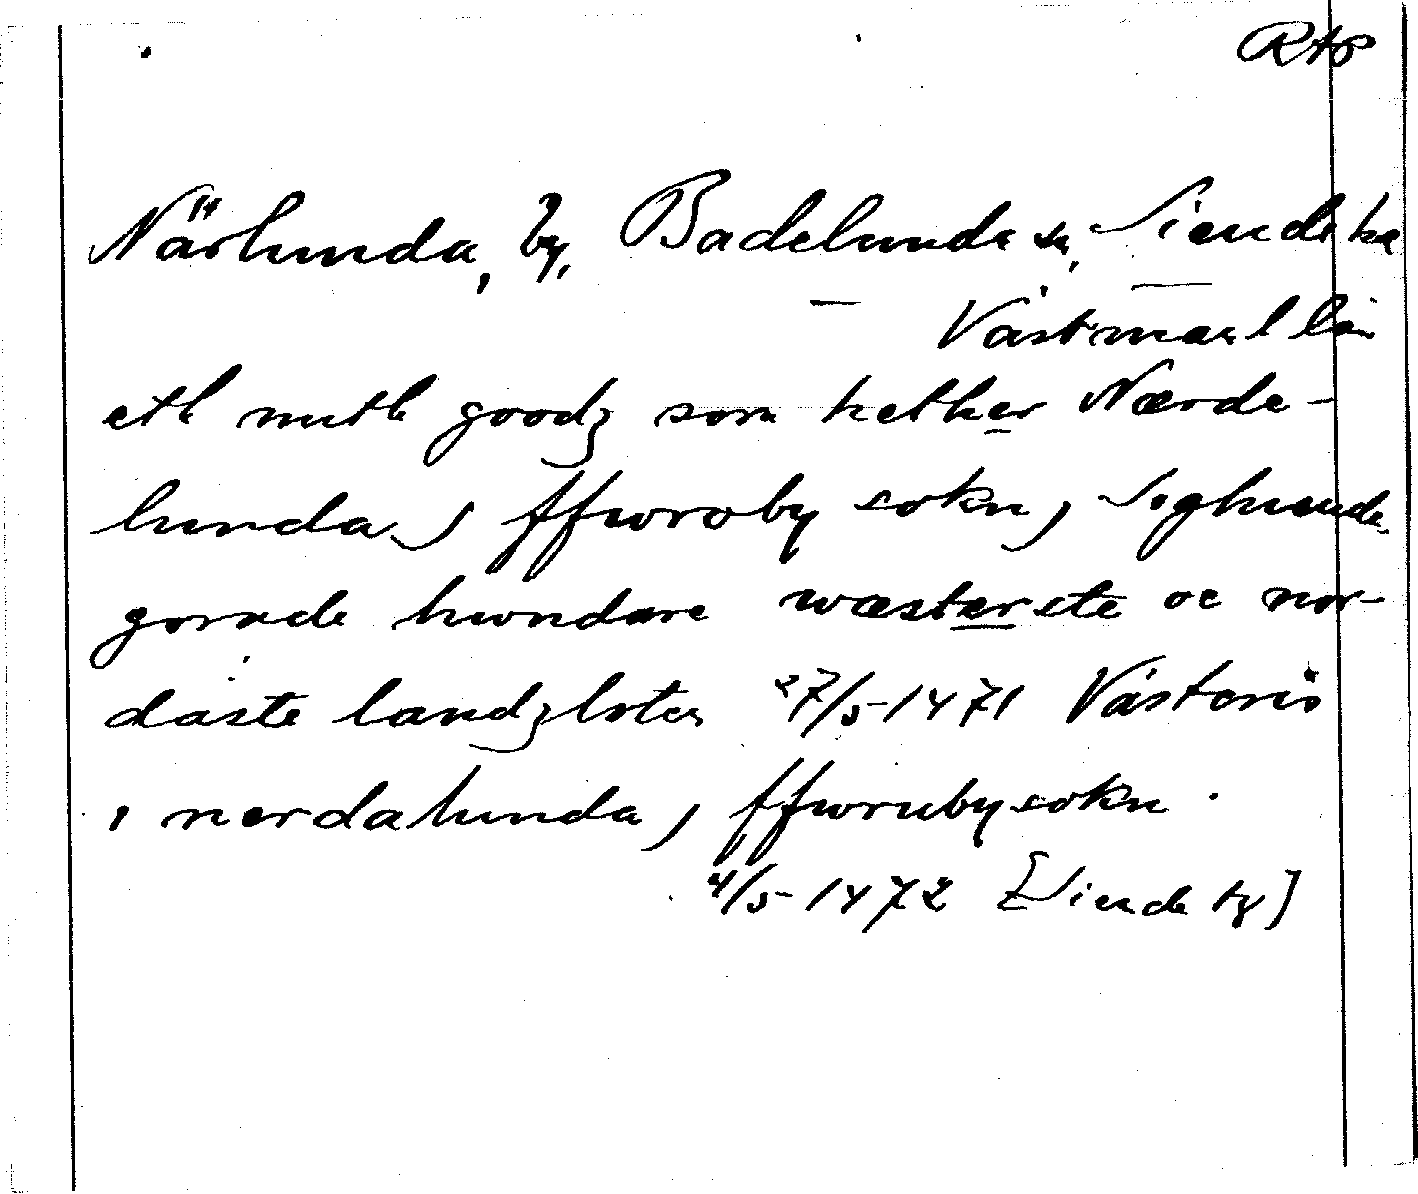 RAp
Närlunda, by, Badelunda sn, Siende hd
Västmanl län
eth mith goodz som hether Nærde-
lunda j ffworoby sokn j Sighende
gorade hwndare wæsterste oc nor-
daste landzloten 27/5 1471 Västerås
i nerdalunda j ffwrubysokn.
4/5 1472 [Siende tg]